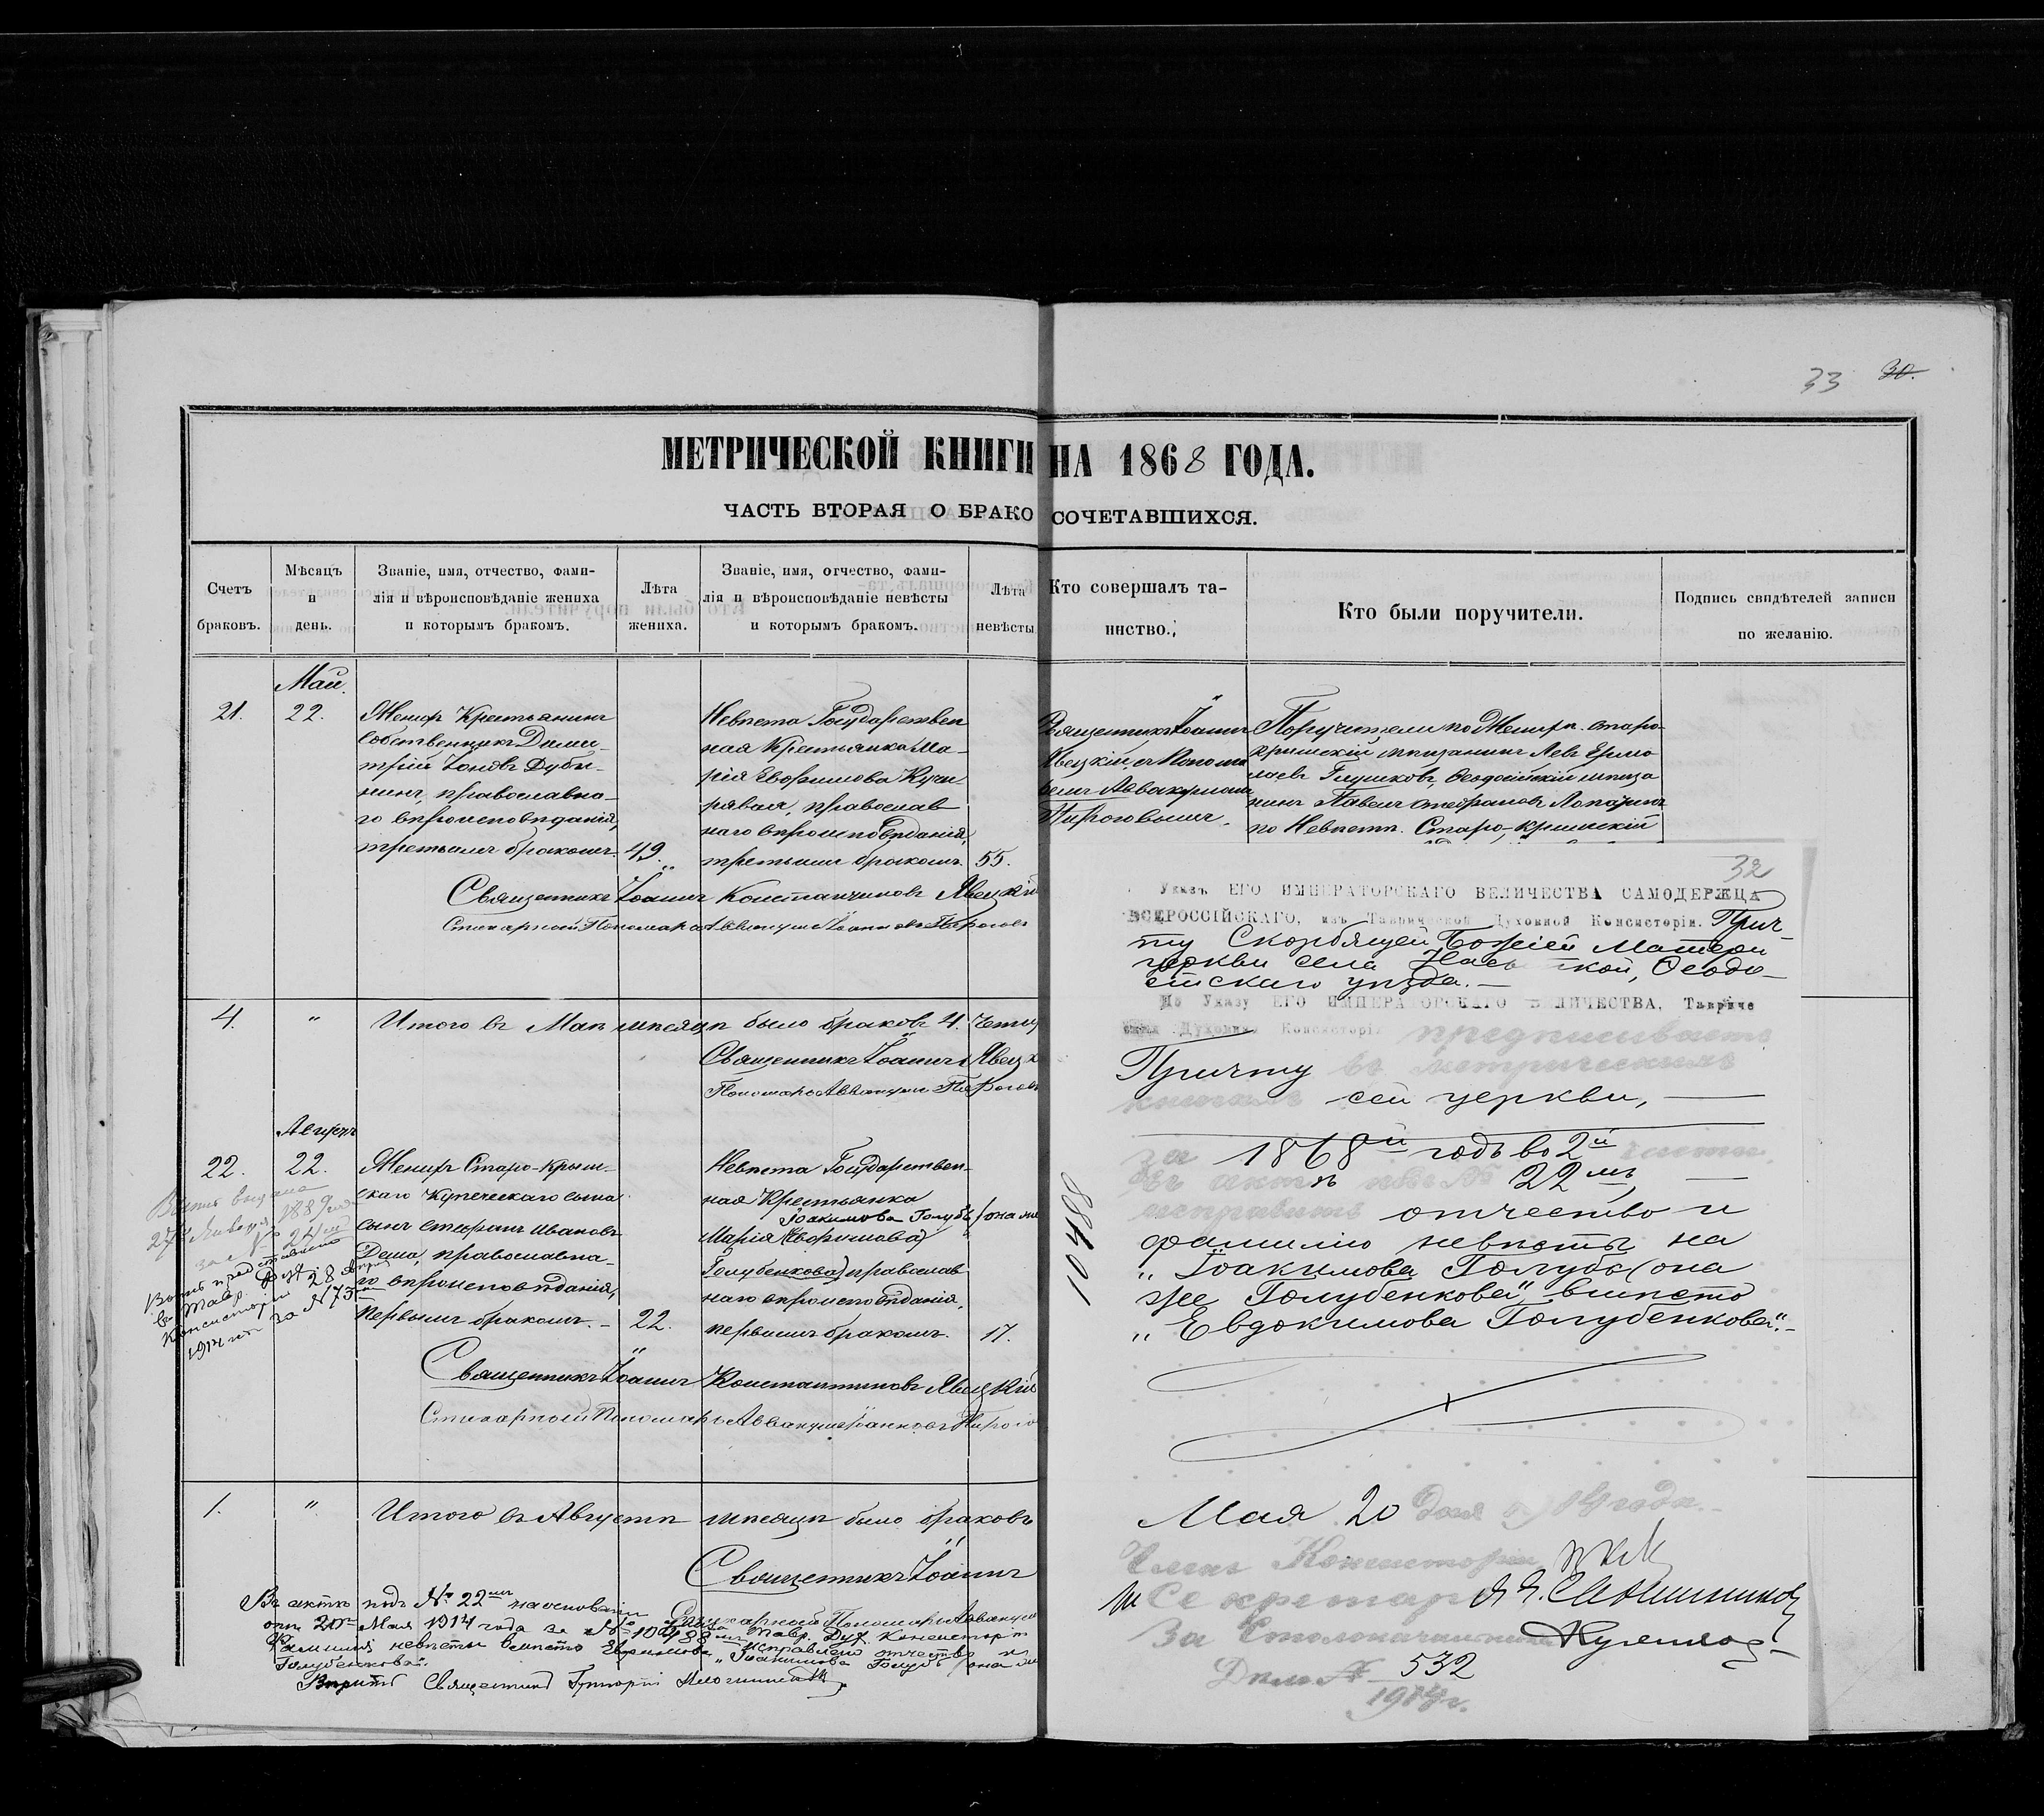 33 30.
МЕТРИЧЕСКОЙ КНИГИ НА 1868 ГОДА.
ЧАСТЬ ВТОРАЯ О БРАКОСОЧЕТАВШИХСЯ.
Счетъ браковъ.
Мѣсяцъ и день.
Званіе, имя, отчество, фами-
лія и вѣроисповѣданіе жениха
и которымъ бракомъ.
Лѣта жениха.
Званіе, имя, отчество, фами-
лія и вѣроисповѣданіе невѣсты
и которымъ бракомъ.
Лѣта невѣсты
Кто совершалъ та-
инство.
Кто были поручители.
Подпись свидѣтелей записи
по желанію.
Май.
21. 22.
Женихъ Крестьянинъ
собственникъ Дими-
трій Іоновъ Дуби-
нинъ, православна-
го вѣроисповѣданія,
третьимъ бракомъ. 49.
Невѣста Государствен
ная Крестьянка Ма-
рія
православ
наго вѣроисповѣданія,
третьимъ бракомъ. 55.
Священникъ Іоаннъ
Явецкій, съ Понома
Пироговымъ.
Поручители по Женихѣ. старо-
крымскій мѣщанинъ Левъ Ермо
лаевъ Глушковъ, Ѳеодосійскій мѣща
нинъ Павелъ Стефановъ
по Невѣстѣ. Старо-крымскій
Священникъ Іоаннъ Константиновъ Явецкій
Стихарный Пономарь Аввакумъ Іоанновъ Пирогов
4. "
Итого въ Маѣ мѣсяцѣ было браковъ 4. Четы
Священникъ Іоаннъ Явецк
Пономарь Аввакумъ Пирогов
Августъ
22. 22.
Женихъ Старо-Крым-
скаго Купеческаго сына
сынъ Стефанъ Ивановъ
православна-
го вѣроисповѣданія,
первымъ бракомъ. 22.
Невѣста Государствен-
ная Крестьянка
Іоакимова Голубъ (она же
Марія
Голубенкова) православ
наго вѣроисповѣданія,
первымъ бракомъ. 17.
выдана
27 Января 1889 года
за № 24
представлена
въ Тавр. Дух.
Консисторію 28
1914 г. за № 75
Священникъ Іоаннъ Константиновъ Явецкій
Стихарный Пономарь Аввакумъ Іоанновъ Пирого
1. "
Итого въ Августѣ мѣсяцѣ было браковъ
Священникъ Іоаннъ
Стихарный Пономарь Аввакум
Въ актѣ подъ № 22 на основаніи
отъ 20 Мая 1914 года за № 10488 Тавр. Дух. Консисторіи
исправлено отчество и
фамилія невѣсты вмѣсто
„Іоакимова Голубъ (она же
Голубенкова".
Священникъ Григорій
32
Указъ ЕГО ИМПЕРАТОРСКАГО ВЕЛИЧЕСТВА САМОДЕРЖЦА
ВСЕРОССІЙСКАГО, изъ Таврической Духовной Консисторіи. Прич-
ту Скорбящей Божіей Матери
церкви села Ѳеодо-
сійскаго уѣзда.
По Указу ЕГО ИМПЕРАТОРСКАГО ВЕЛИЧЕСТВА, Тавриче
ская Духовная Консисторія предписываетъ
Причту въ метрическихъ
книгахъ сей церкви,
за 1868й годъ во 2й части
въ актѣ подъ № 22мъ,
исправить отчество и
фамилію невѣсты на
„Іоакимова Голубъ (она
же Голубенкова", вмѣсто
„Евдокимова Голубенкова".
10488
Мая 20 дня 1914 года.
Членъ Консисторіи
Секретарь
За Столоначальника
Дѣло № 532
1914 г.